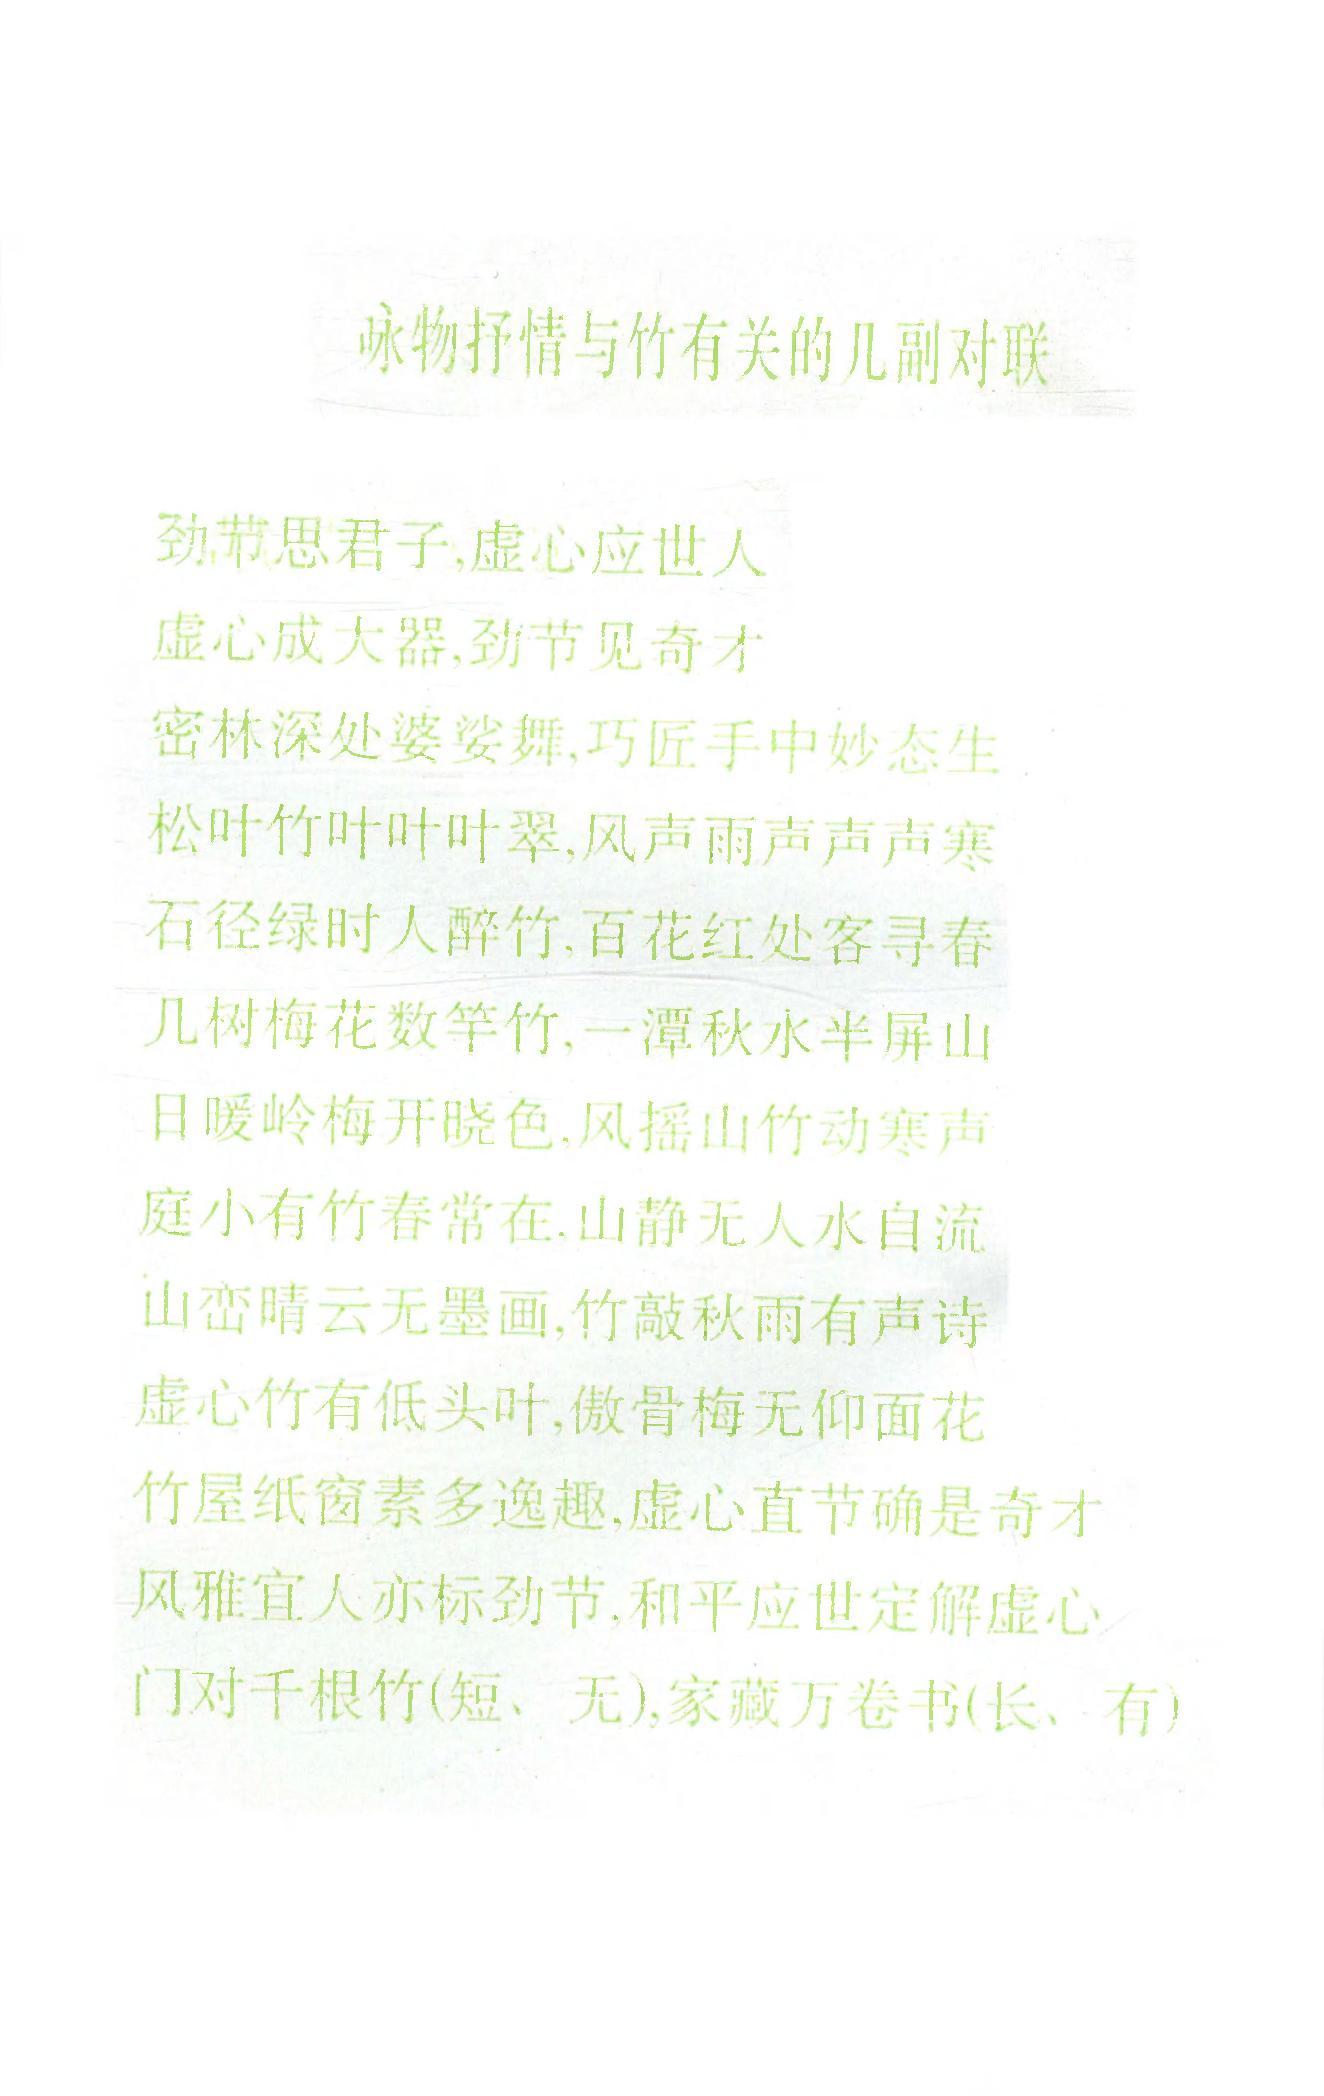 咏物抒情与竹有关的几副对联
劲节思君子,虚心应世人
虚心成大器,劲节见奇才
密林深处婆娑舞,巧匠手中妙态生
松叶竹叶叶叶翠,风声雨声声声寒
石径绿时人醉竹,百花红处客寻春
几树梅花数竿竹,一潭秋水半屏山
日暖岭梅开晓色,风摇山竹动寒声
庭小有竹春常在.山静无人水自流
山峦晴云无墨画,竹敲秋雨有声诗
虚心竹有低头叶,傲骨梅无仰面花
竹屋纸窗素多逸趣,虚心直节确是奇才
风雅宜人亦标劲节,和平应世定解虚心
门对千根竹(短、 无),家藏万卷书(长、 有)